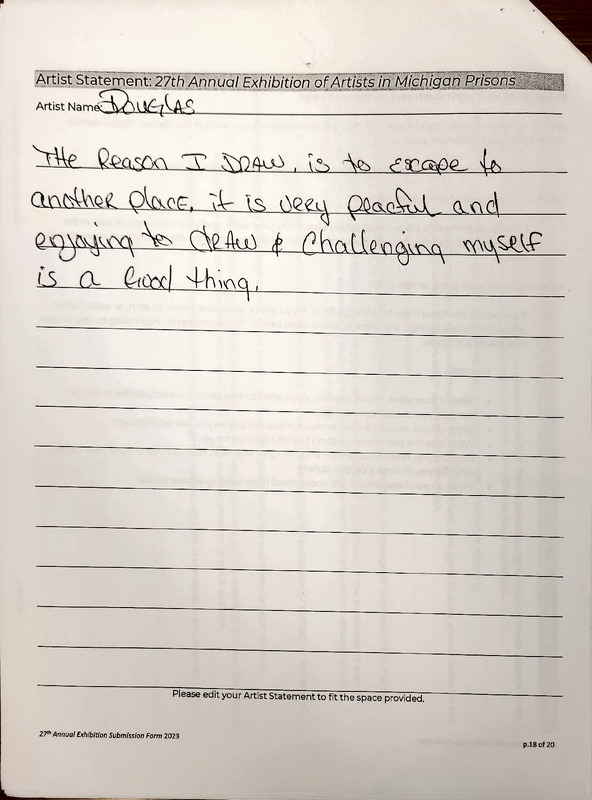 Artist Statement: 27th Annual Exhibition of Artists in Michigan Prisons
Artist Name: DOUGLAS
THe Reason I DRAW, is to escape to
another place, it is very peacful and
enjoying to dRAW & Challenging myself
is a Good thing.
Please edit your Artist Statement to fit the space provided.
27th Annual Exhibition Submission Form 2023
p.18 of 20